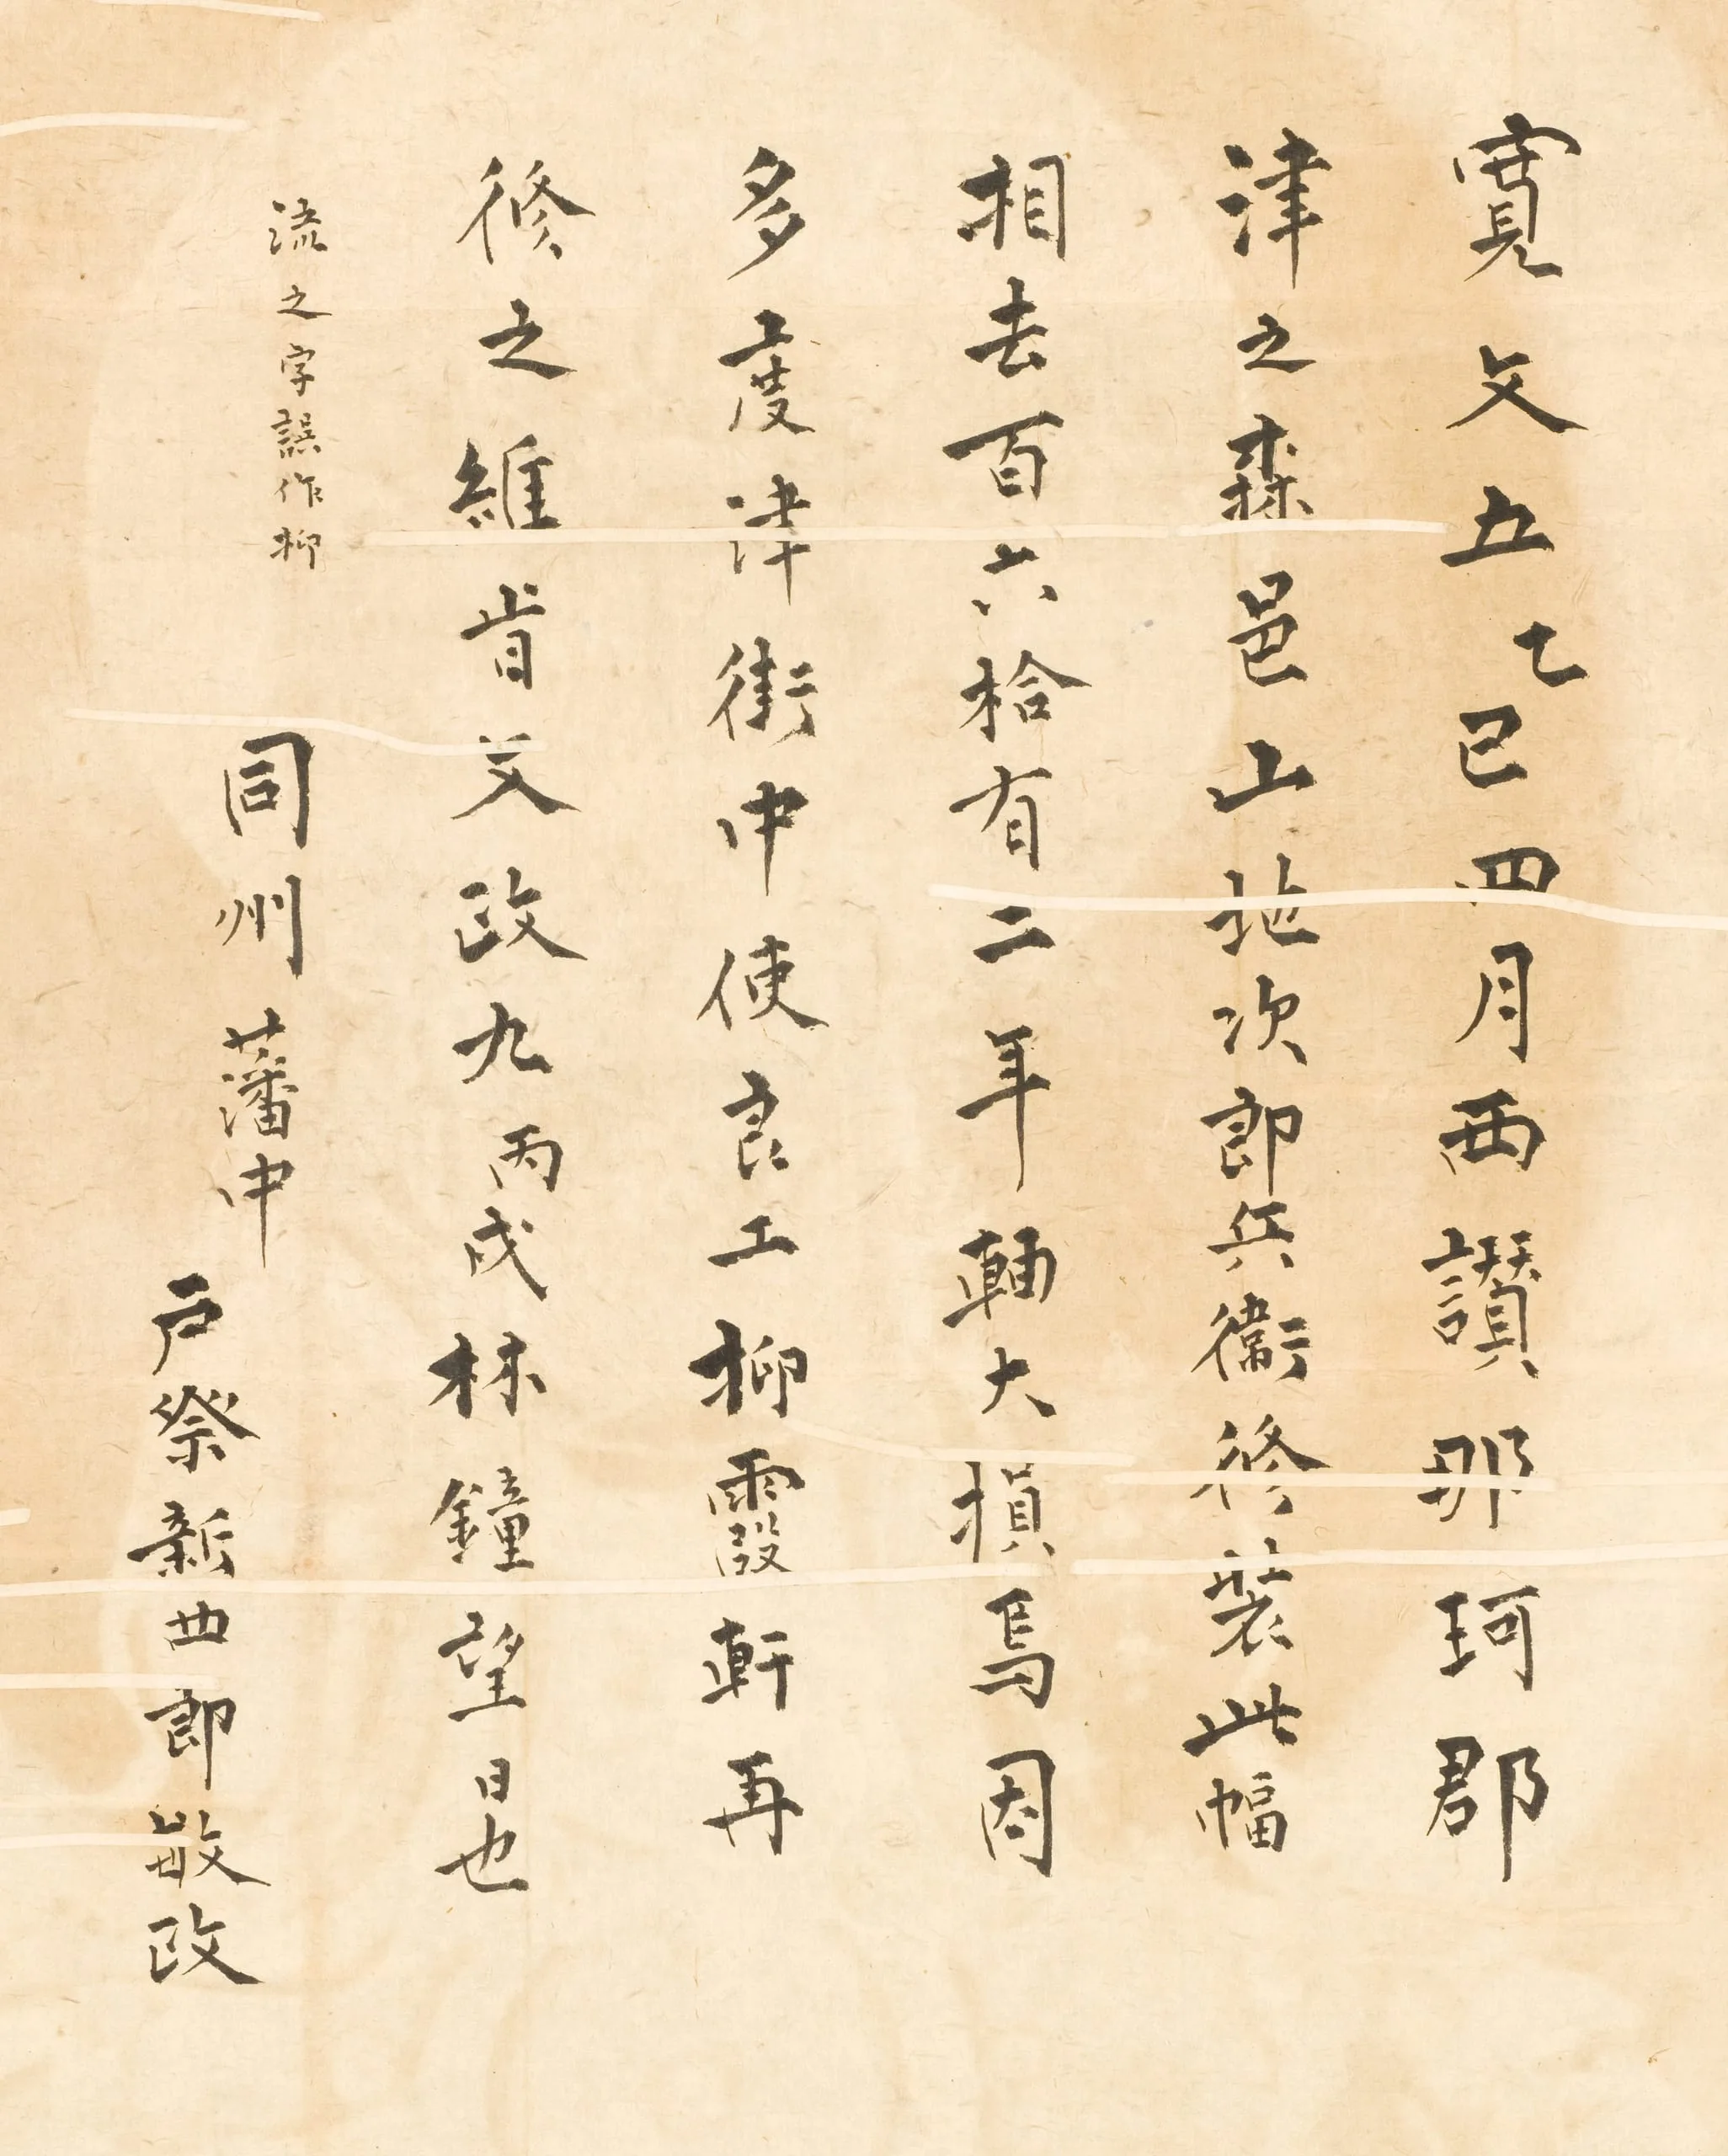 寛文五乙巳四月西讃那珂郡
津之森邑山地次郎兵衞修装此幅
相去百六拾有二年軸大損焉因
多度津街中使良工柳霞軒再
修之維肯文政九丙戌林鐘望日也
流之字誤作柳
同州藩中
戸祭新曲郎敬改